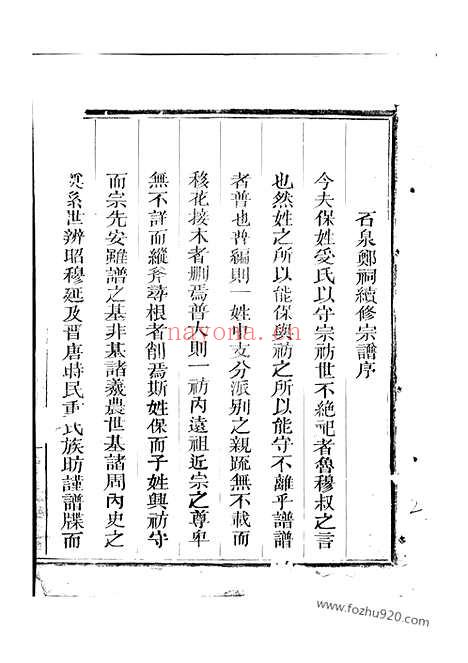 石泉鄭祠續修宗譜序
今夫保姓受氏以守宗祊世不絶祀者魯穆叔之言
也然姓之所以能保與祊之所以能守不離乎譜譜
者普也普編則一姓中支分派别之親疏無不載而
移花接木者删焉普内則一祊内遠祖近宗之尊卑
無不詳而縱斧尋根者削焉斯姓保而子姓興祊守
而宗先安雖譜之基非基諸羲農世基諸周内史之
奠系世辨昭穆延及晋唐時民重氏族昉謹譜牒而
2
nayona.cn
www.fozhu920.com